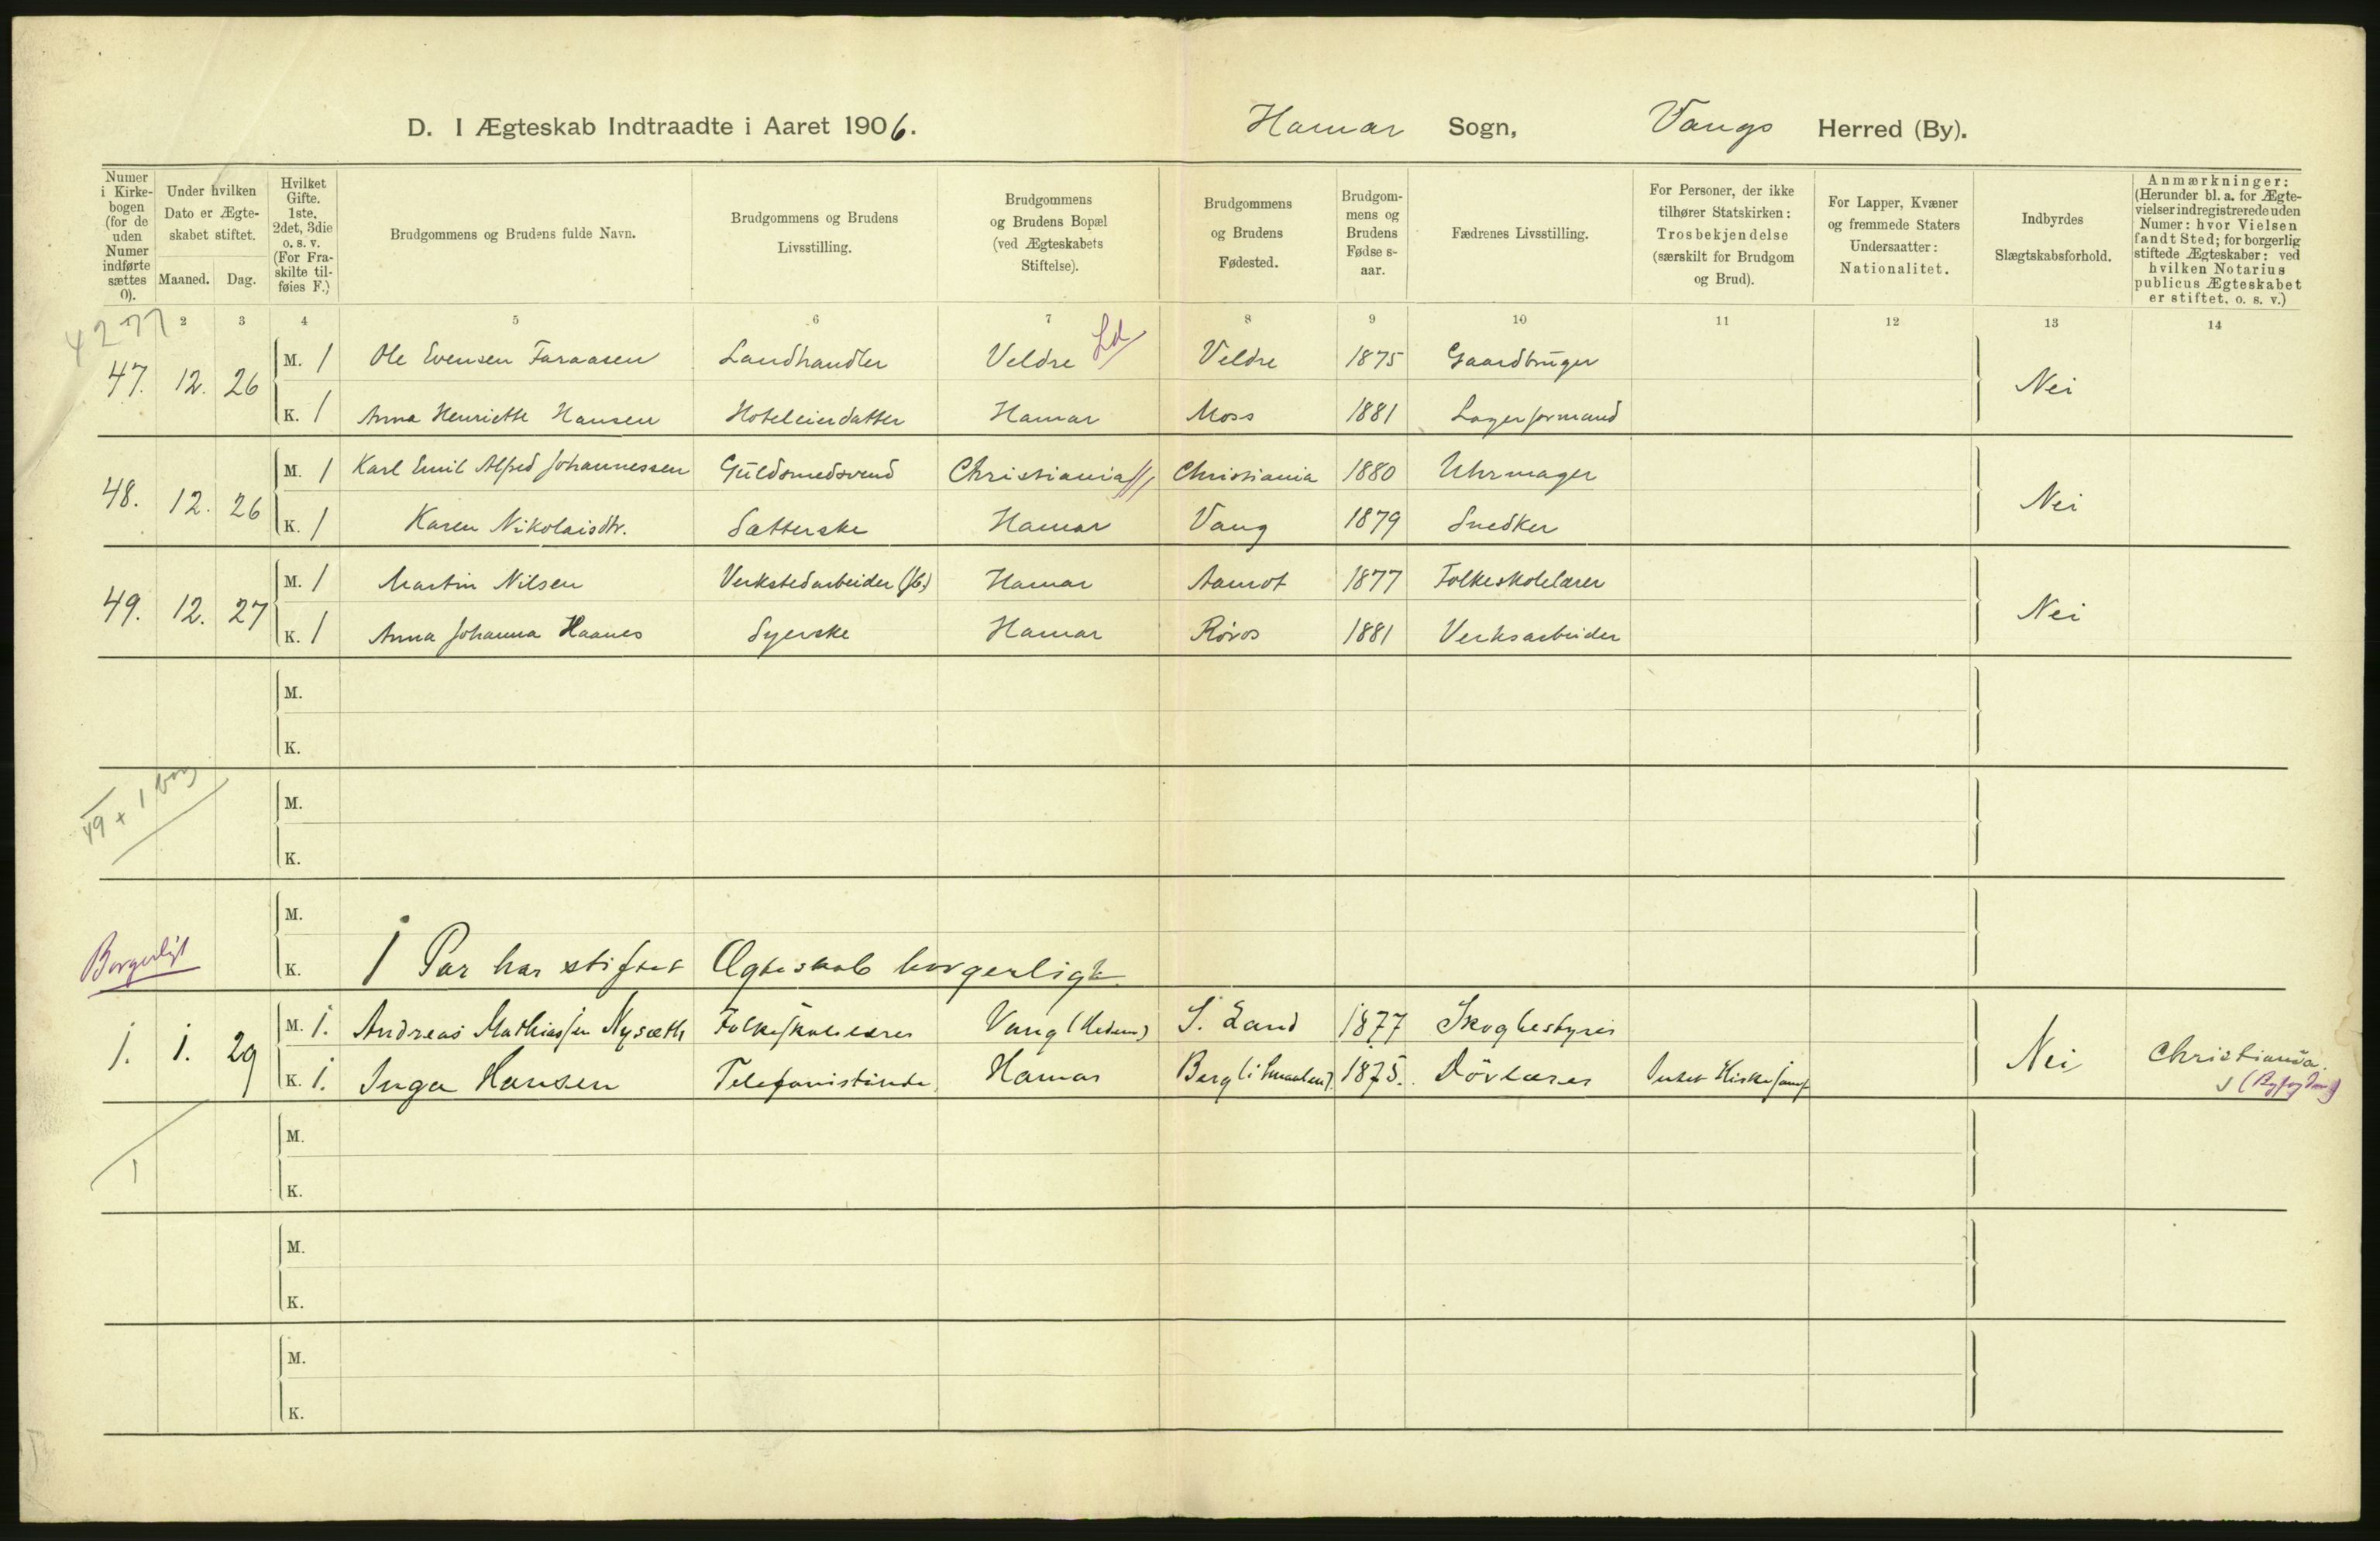 D. I Ægteskab Indtraadte i Aaret 1906. Hamar Sogn, Vangs Herred (By).
Numer i Kirkebogen (for de uden Numer indførte sættes 0).
Under hvilken Dato er Ægteskabet stiftet.
Maaned. Dag.
Hvilket Gifte. 1ste, 2det, 3die o. s. v. (For Fraskilte tilføies F.)
Brudgommens og Brudens fulde Navn.
Brudgommens og Brudens Livsstilling.
Brudgommens og Brudens Bopæl (ved Ægteskabets Stiftelse).
Brudgommens og Brudens Fødested.
Brudgommens og Brudens Fødselsaar.
Fædrenes Livsstilling.
For Personer, der ikke tilhører Statskirken: Trosbekjendelse (særskilt for Brudgom og Brud).
For Lapper, Kvæner og fremmede Staters Undersaatter: Nationalitet.
Indbyrdes Slægtskabsforhold.
Anmærkninger: (Herunder bl. a. for Ægtevielser indregistrerede uden Numer: hvor Vielsen fandt Sted; for borgerlig stiftede Ægteskaber: ved hvilken Notarius publicus Ægteskabet er stiftet, o. s. v.)
2 3 4 5 6 7 8 9 10 11 12 13 14
4277
47. 12. 26 M. 1 Ole Evensen Faraasen Landhandler Veldre Ld Veldre 1875 Gaardbruger Nei
K. 1 Anna Henriette Hansen Hoteleierdatter Hamar Moss 1881 Lagerformand
48. 12. 26 M. 1 Karl Emil Alfred Johannessen Guldsmedsvend Christiania Christiania 1880 Uhrmager Nei
K. 1 Karen Nikolaisdtr. Sætterske Hamar Vang 1879 Snedker
49. 12. 27 M. 1 Martin Nilsen Verkstedarbeider (Jb.) Hamar Aamot 1877 Folkeskolelærer Nei
K. 1 Anna Johanna Haanes Syerske Hamar Röros 1881 Verksarbeider
M.
K.
49 + 1 borg
M.
K.
M.
Borgerligt
K. 1 Par har stiftet Ægteskab borgerligt.
1. 1. 29 M. 1. Andreas Mathiassen Nysæth Folkeskolelærer Vang (Hedem) S. Land 1877 Skogbestyrer Nei Christiania.
K. 1. Inga Hansen Telefonistinde Hamar Berg (i Smaalen). 1875. Døvlærer Intet Kirkesamf (Byfogden)
1
M.
K.
M.
K.
M.
K.